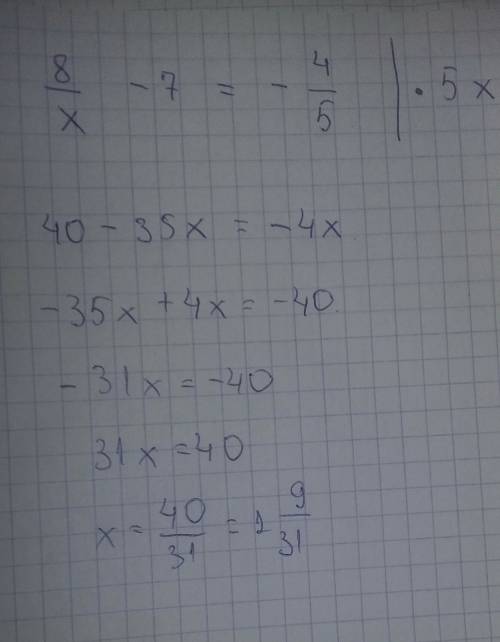 8/x - 7 = - 4/5 | · 5x
40 - 35x = -4x
-35x + 4x = -40
- 31x = -40
31x = 40
x = 40/31 = 1 9/31